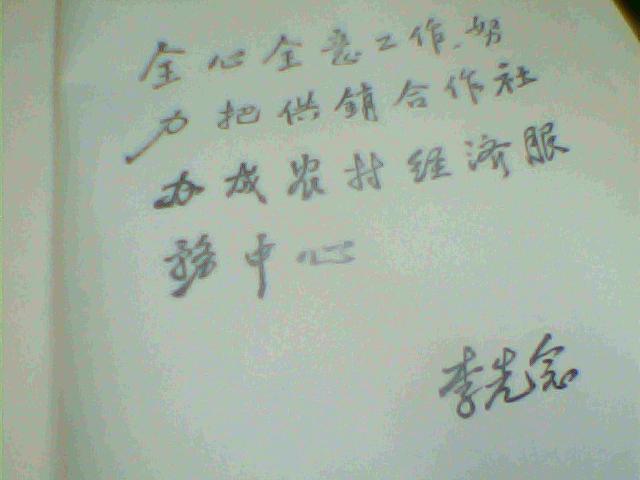 全心全意工作、努
力把供銷合作社
办成农村经济服
務中心
李先念